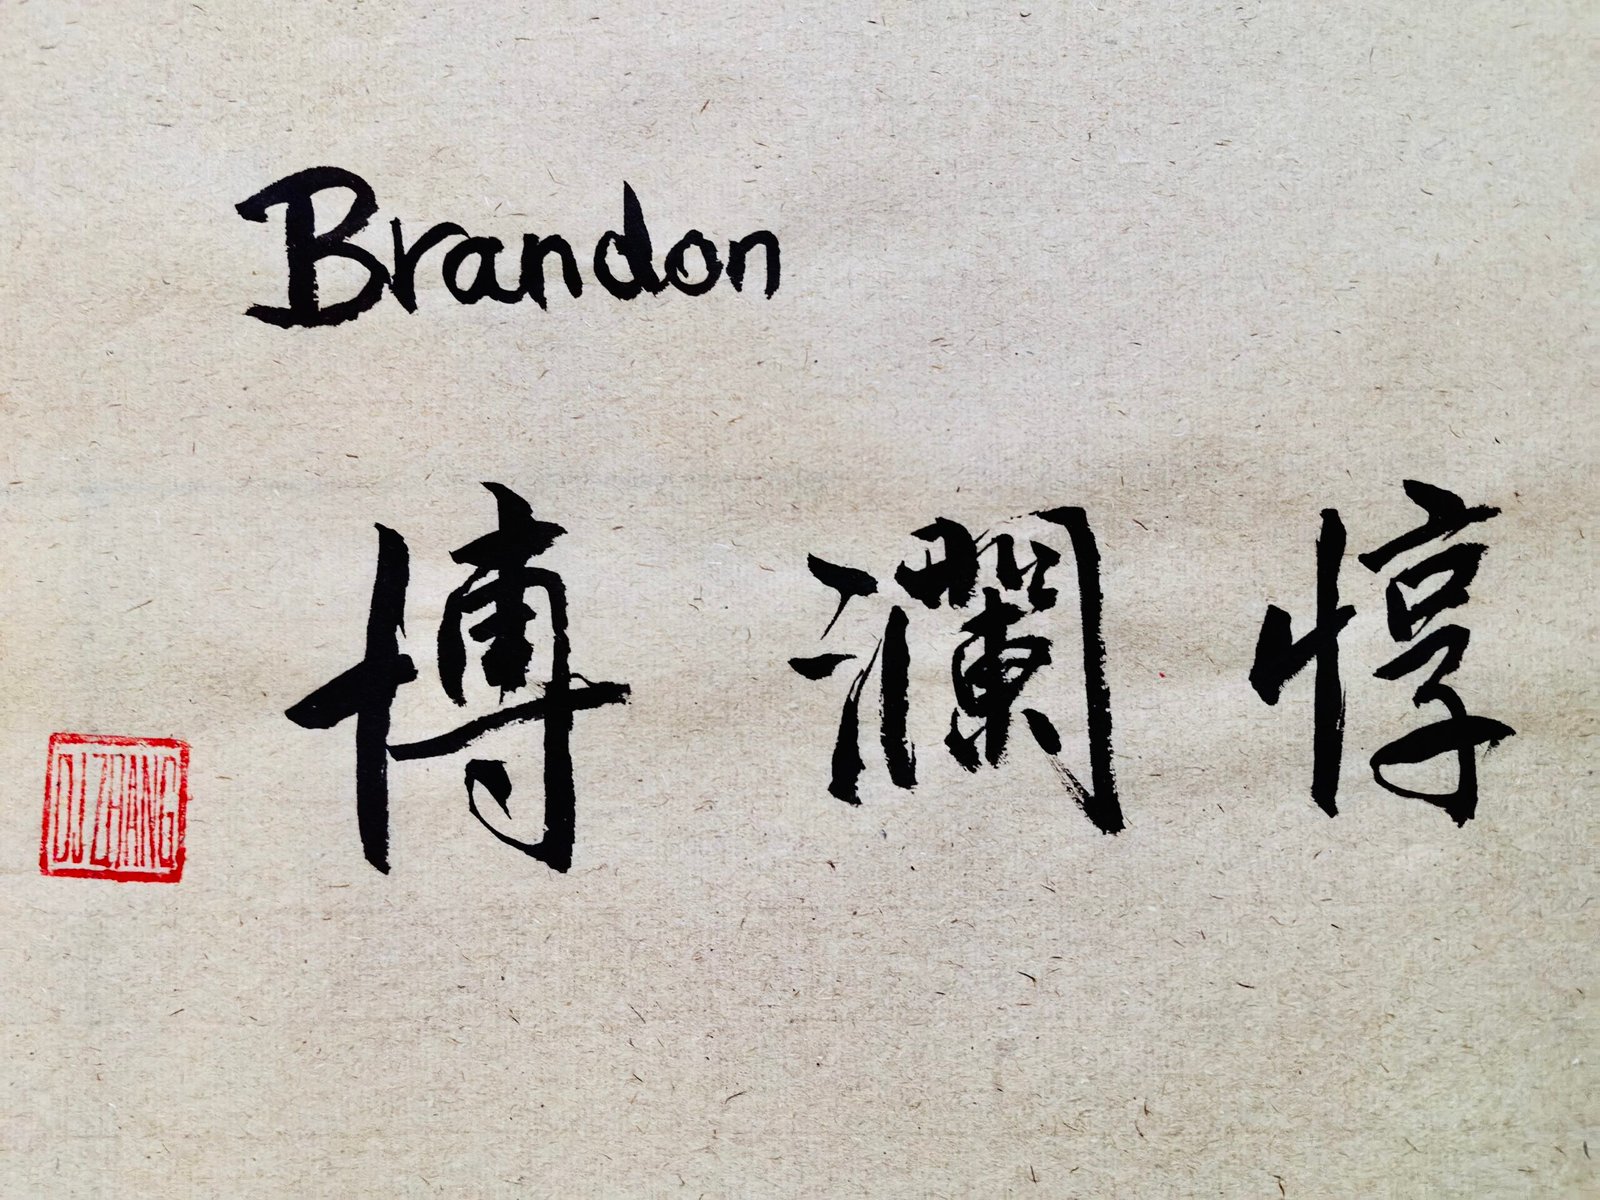 Brandon
博瀾惇
DJ ZHANG